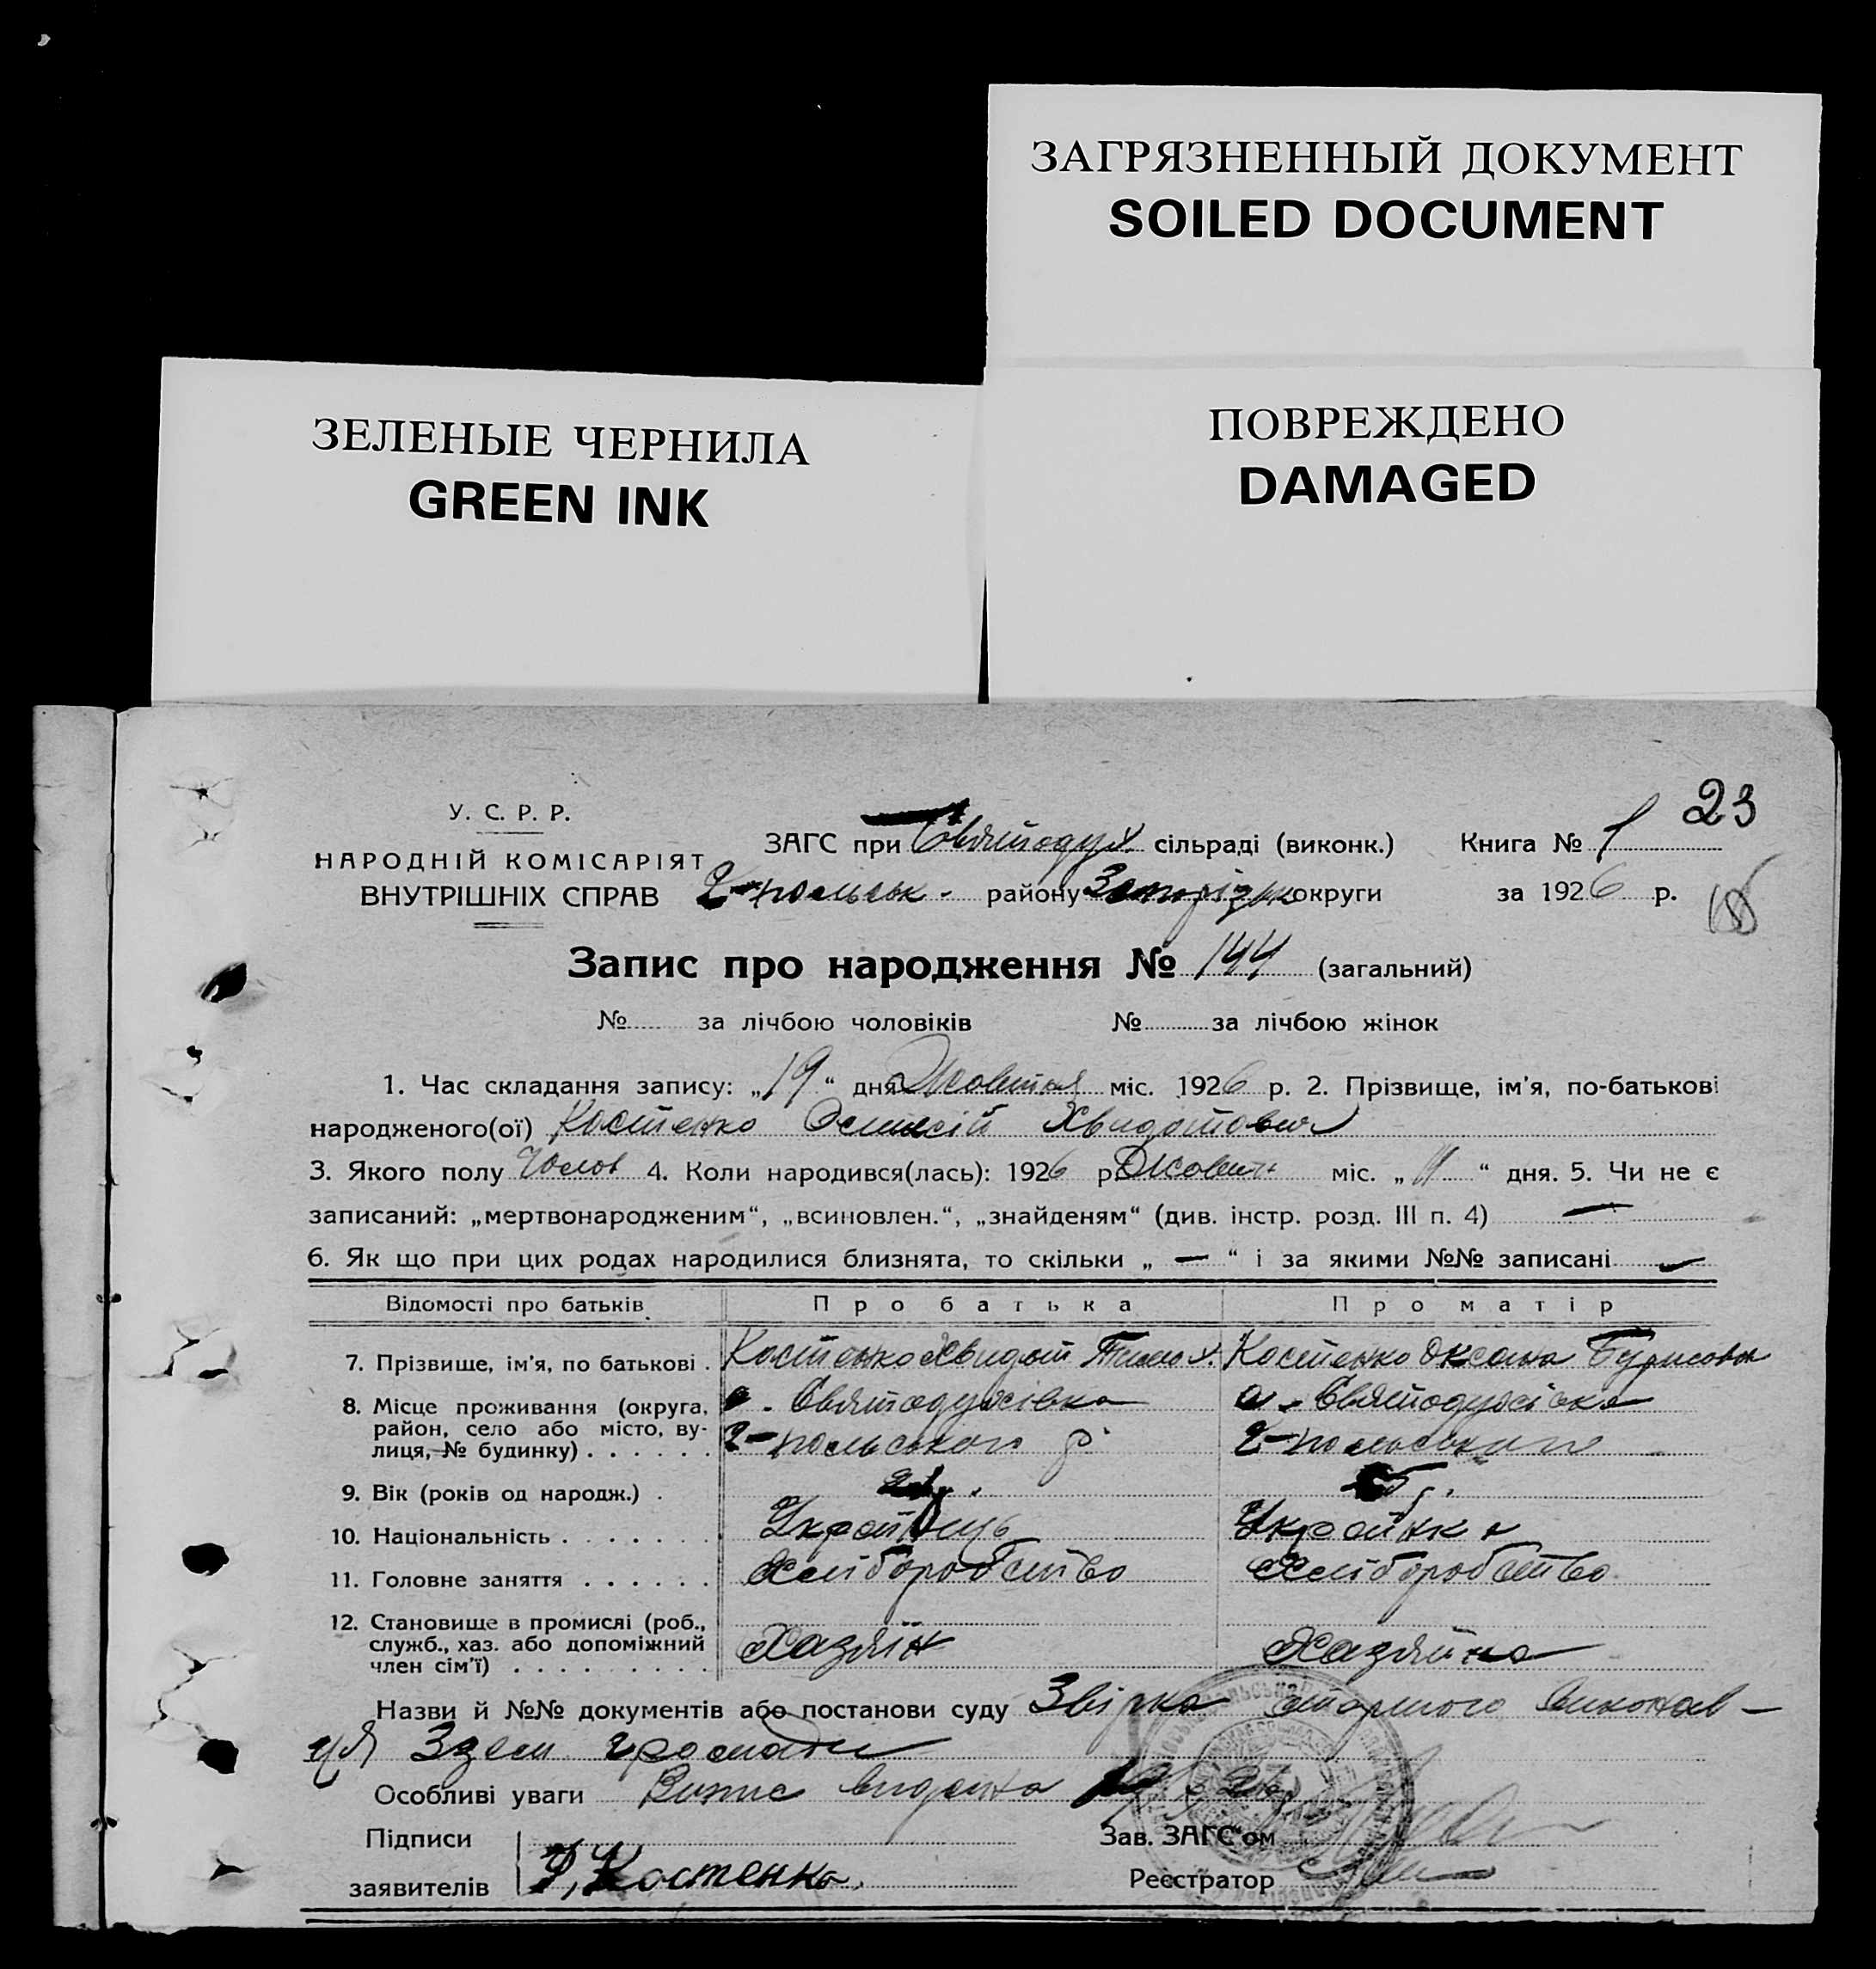 ЗАГРЯЗНЕННЫЙ ДОКУМЕНТ
SOILED DOCUMENT
ЗЕЛЕНЫЕ ЧЕРНИЛА
GREEN INK
ПОВРЕЖДЕНО
DAMAGED
23
У. С. Р. Р.
НАРОДНІЙ КОМІСАРІЯТ
ВНУТРІШНІХ СПРАВ
ЗАГС при Святодух. сільраді (виконк.) Книга № 1
району Запорізьк округи за 1926 р.
Запис про народження № 144 (загальний)
№ за лічбою чоловіків № за лічбою жінок
1. Час складання запису: „19“ дня Жовтня міс. 1926 р. 2. Прізвище, ім'я, по-батькові
народженого(ої) Костенко Хвидотович
3. Якого полу Чолов 4. Коли народився(лась): 1926 р. Жовтн міс. „11“ дня. 5. Чи не є
записаний: „мертвонародженим“, „всиновлен.“, „знайденям“ (див. інстр. розд. III п. 4) —
6. Як що при цих родах народилися близнята, то скільки „ — “ і за якими №№ записані —
Відомості про батьків Про батька Про матір
7. Прізвище, ім'я, по батькові . Костенко Хвидот Тимох. Костенко Оксана Бурисовна
8. Місце проживання (округа, с. Святодухівка с. Святодухівка
район, село або місто, ву-
лиця, № будинку) . . . . . . 2-польського р. 2-польського
9. Вік (років од народж.) .
10. Національність . . . . . . . Українець Українка
11. Головне заняття . . . . . . Хліборобство Хліборобство
12. Становище в промислі (роб.,
служб., хаз. або допоміжний Хазяїн Хазяйка
член сім'ї) . . . . . . . . .
Назви й №№ документів або постанови суду Звірка старшого виконав-
ця Ззем громади
Особливі уваги Випис видана
Підписи Зав. ЗАГС'ом
заявителів Костенко. Реєстратор